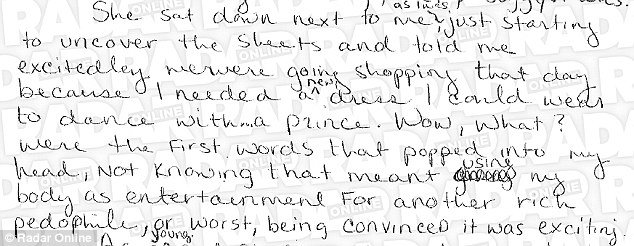 as I was
She sat down next to me, just starting
to uncover the sheets and told me
excitedley wewere going shopping that day
because I needed a new dress I could wear
to dance with a prince. Wow, what?
were the first words that popped into my
head, not knowing that meant using my
body as entertainment for another rich
pedophile, or worst, being convinced it was exciting.
young
© Radar Online